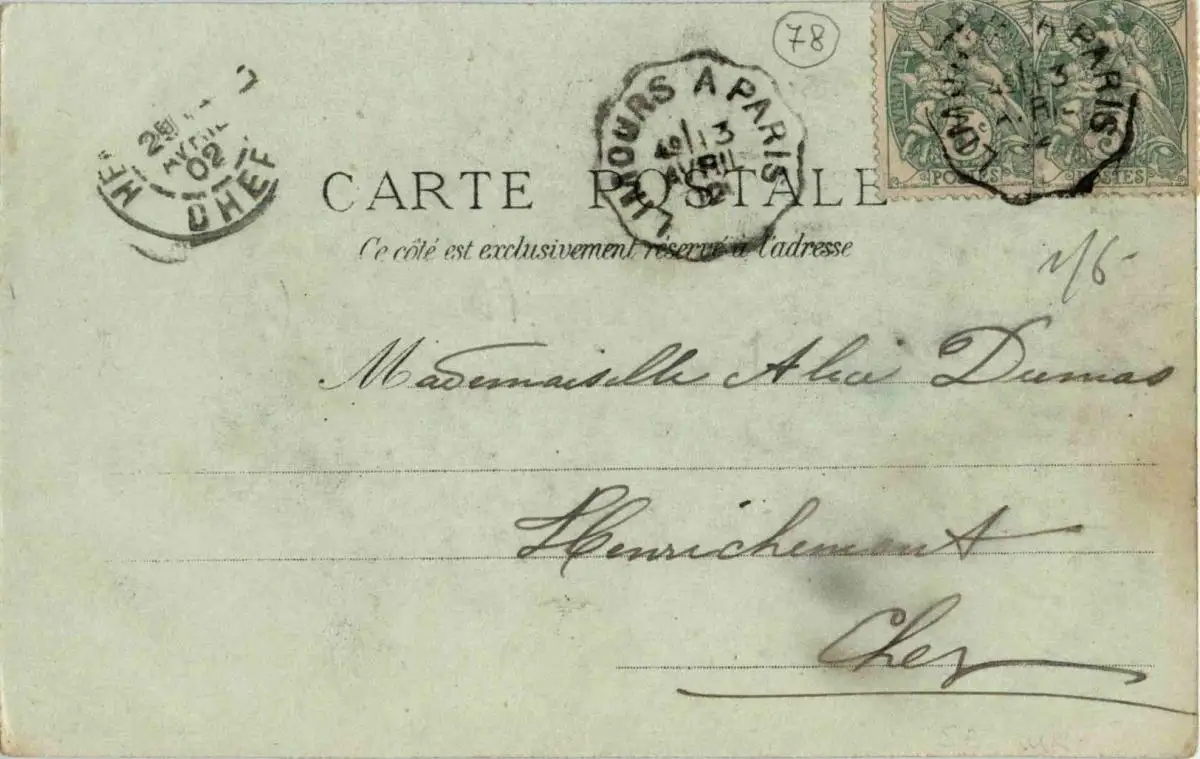 78
LIMOURS A PARIS
13
AVRIL
02
LIMOURS A PARIS
13
POSTES POSTES
AVRIL
02
DHER
CARTE POSTALE
Ce côté est exclusivement réservé à l'adresse
Mademoiselle Alice Dumas
Henrichemont
Cher